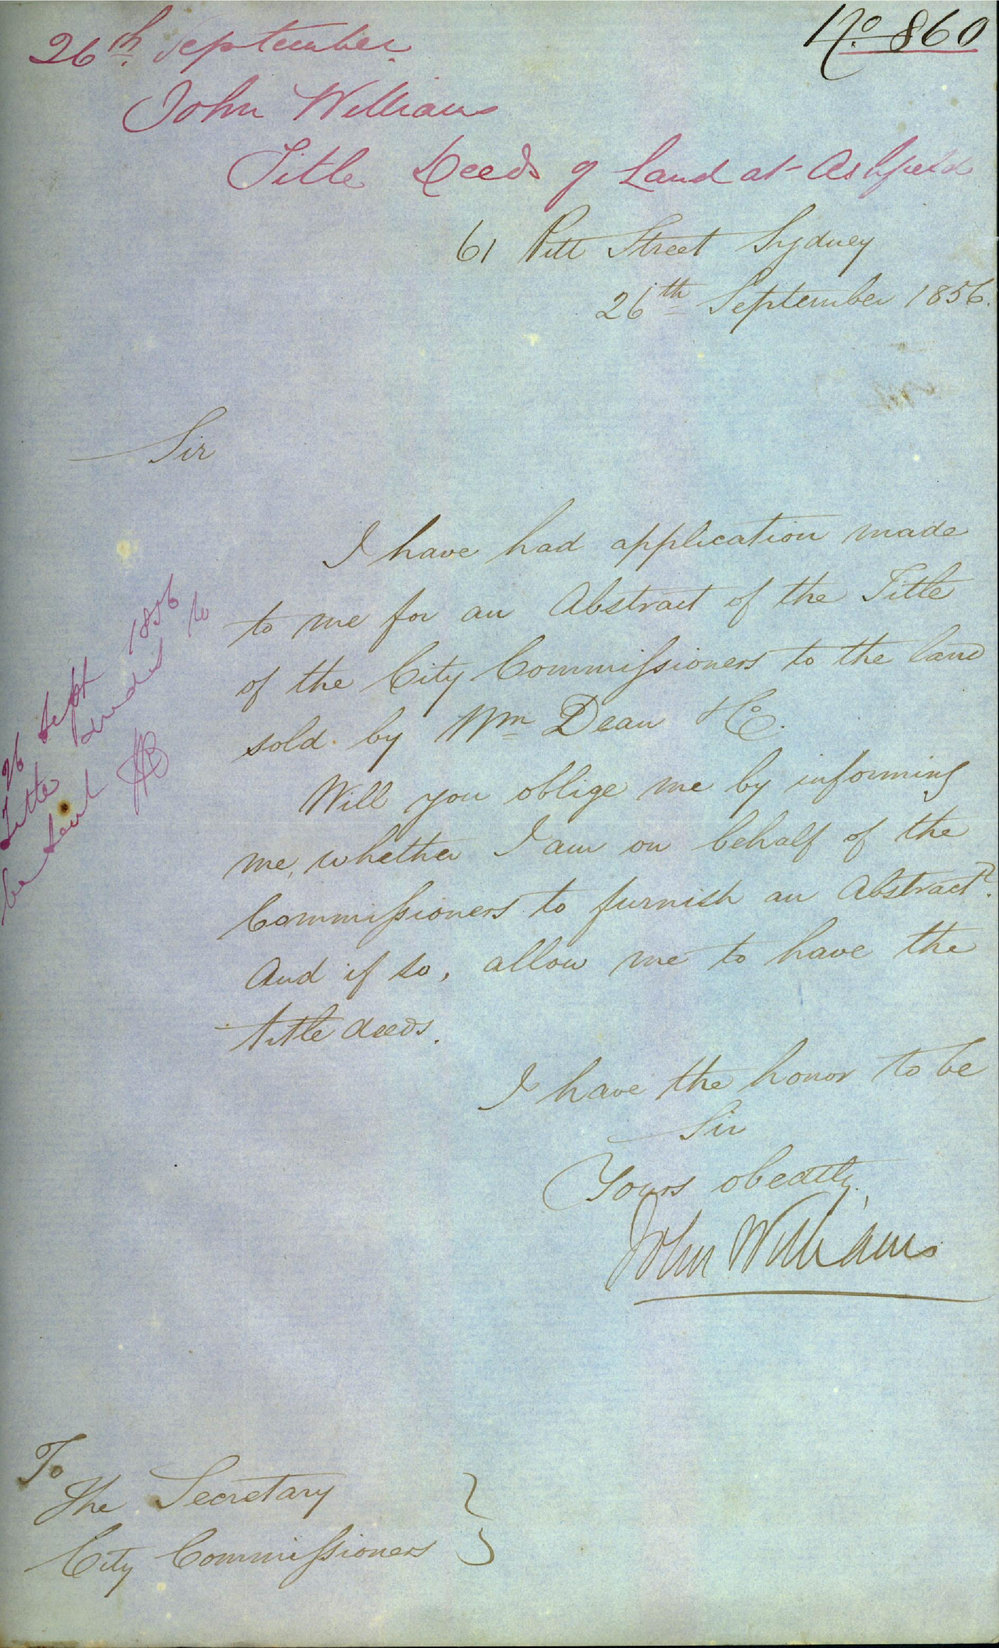 No. 860
26th. September
John Williams
Title Deeds of Land at Ashfield
61 Pitt Street Sydney
26th September 1856.
Sir
I have had application made
to me for an Abstract of the Title
of the City Commissioners to the land
sold by Wm Dean & Co.
Will you oblige me by informing
me, whether I am on behalf of the
Commissioners to furnish an Abstract?
And if so, allow me to have the
title deeds.
I have the honor to be
Sir
Yours obedtly.
John Williams
26 Sept 1856
be sent
To
The Secretary
City Commissioners